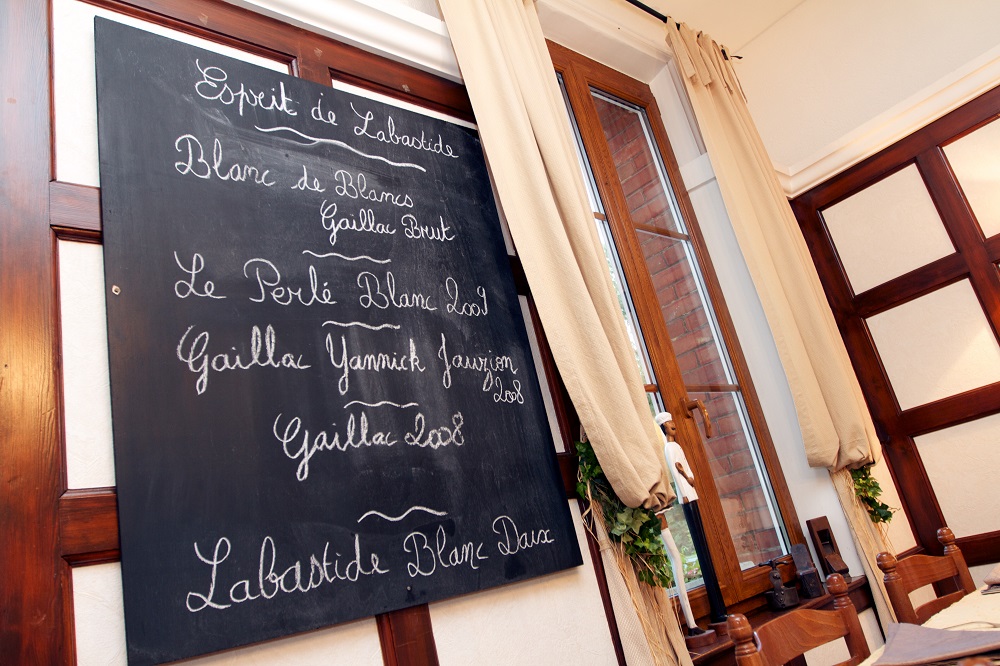 Esprit de Labastide
Blanc de Blancs
Gaillac Brut
Le Perlé Blanc 2009
Gaillac Yannick Jauzion
2008
Gaillac 2008
Labastide Blanc Daux